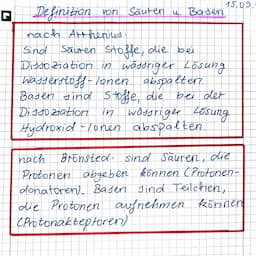 Definition von Säuren u Basen
15.09.
nach Arrhenius:
Sind Säuren Stoffe, die bei
Dissoziation in wässriger Lösung
Wasserstoff-Ionen abspalten.
Basen sind Stoffe, die bei der
Dissoziation in wässriger Lösung
Hydroxid-Ionen abspalten.
nach Brönsted: sind Säuren, die
Protonen abgeben können (Protonen-
donatoren). Basen sind Teilchen,
die Protonen aufnehmen können
(Protonakzeptoren)